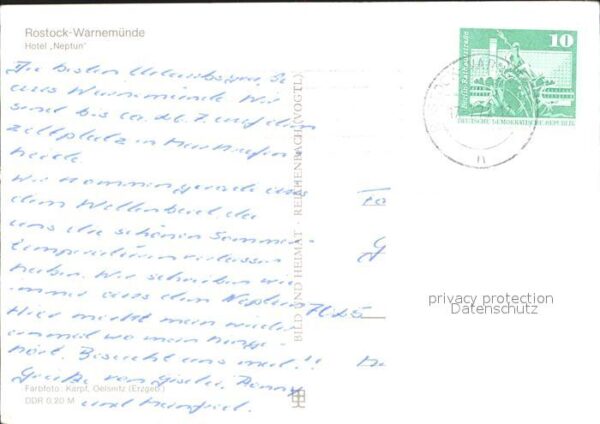 Rostock-Warnemünde
Hotel „Neptun"
Die besten Urlaubsgrüße
aus Warnemünde. Wir
sind bis ca. 26.7. auf dem
Zeltplatz in Markgrafen
heide.
Wir kommen gerade aus
dem Wellenbad, da
uns die schönen Sommer-
temperaturen verlassen
haben. Wir schreiben wie
immer aus dem Neptun Hotel
Hier merkt man wieder
einmal wo man hinge-
hört. Besucht uns mal!!
Grüße von Gisela,
und Manfred.
Farbfoto: Karpf, Oelsnitz (Erzgeb.)
DDR 0,20 M
BILD UND HEIMAT · REICHENBACH (VOGTL)
10
Berlin-Rathausstraße
DEUTSCHE DEMOKRATISCHE REPUBLIK
privacy protection
Datenschutz